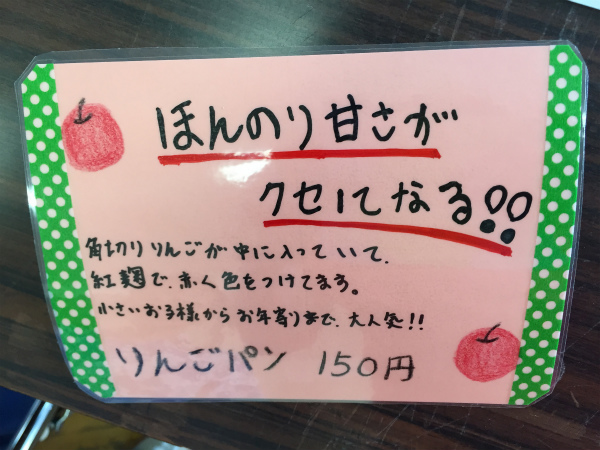 ほんのり甘さが
クセになる!!
角切りりんごが中に入っていて、
紅麹で、赤く色をつけてます。
小さいお子様からお年寄りまで、大人気!!
りんごパン 150円